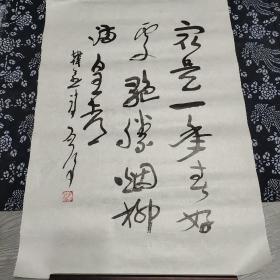 最是一年春好
处绝胜烟柳
满皇都
韩愈诗